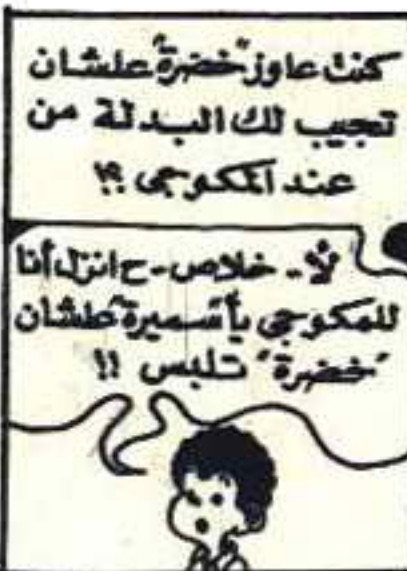 كنت عاوز "خضرة" علشان
تجيب لك البدلة من
عند المكوجى ؟!
لأ - خلاص - ح انزل أنا
للمكوجي يا سميرة علشان
"خضرة" تلبس !!